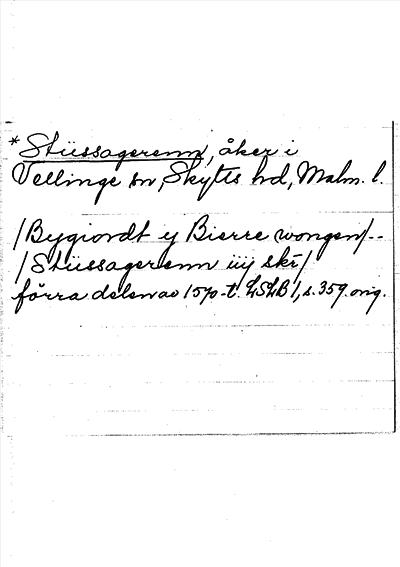 *Stüssagerenn, åker i
Vellinge sn, Skytts hd, Malm. l.
/Bygiordt y Bierre wongen/--
/Stüssagerenn iiij skr/
förra delen av 1570-t. LSLB 1, s. 359. orig.